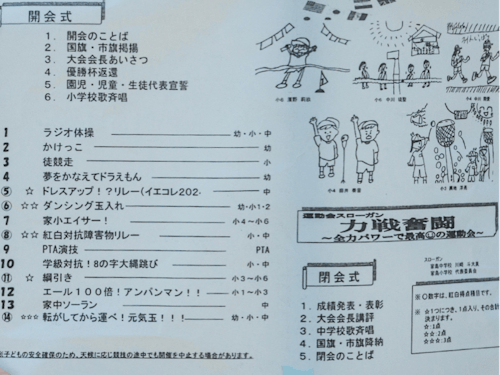 開会式
1. 開会のことば
2. 国旗・市旗掲揚
3. 大会会長あいさつ
4. 優勝杯返還
5. 園児・児童・生徒代表宣誓
6. 小学校歌斉唱
1 ラジオ体操 幼・小・中
2 かけっこ 幼
3 徒競走 小
4 夢をかなえてドラえもん 幼
⑤ ☆ ドレスアップ!?リレー(イエコレ202 中
⑥ ☆☆ ダンシング玉入れ 幼・小1・2
7 家小エイサー! 小4~小6
⑧ ☆☆ 紅白対抗障害物リレー 中
9 PTA演技 PTA
10 学級対抗!8の字大縄跳び 中
⑪ ☆ 綱引き 小3~小6
12 エール100倍!アンパンマン!! 小1~小3
13 家中ソーラン 中
⑭ ☆☆☆ 転がしてから運べ!元気玉!!! 幼・小・中
子どもの安全確保のため、天候に応じ競技の途中でも開催を中止する場合があります。
運動会スローガン
力戦奮闘
~全力パワーで最高の運動会~
スローガン
閉会式
1. 成績発表・表彰
2. 大会会長講評
3. 中学校歌斉唱
4. 国旗・市旗降納
5. 閉会のことば
※〇数字は、紅白得点種目です。
※☆1つにつき、1点入り、その合計
決まります。
☆:1点
☆☆:2点
☆☆☆:3点